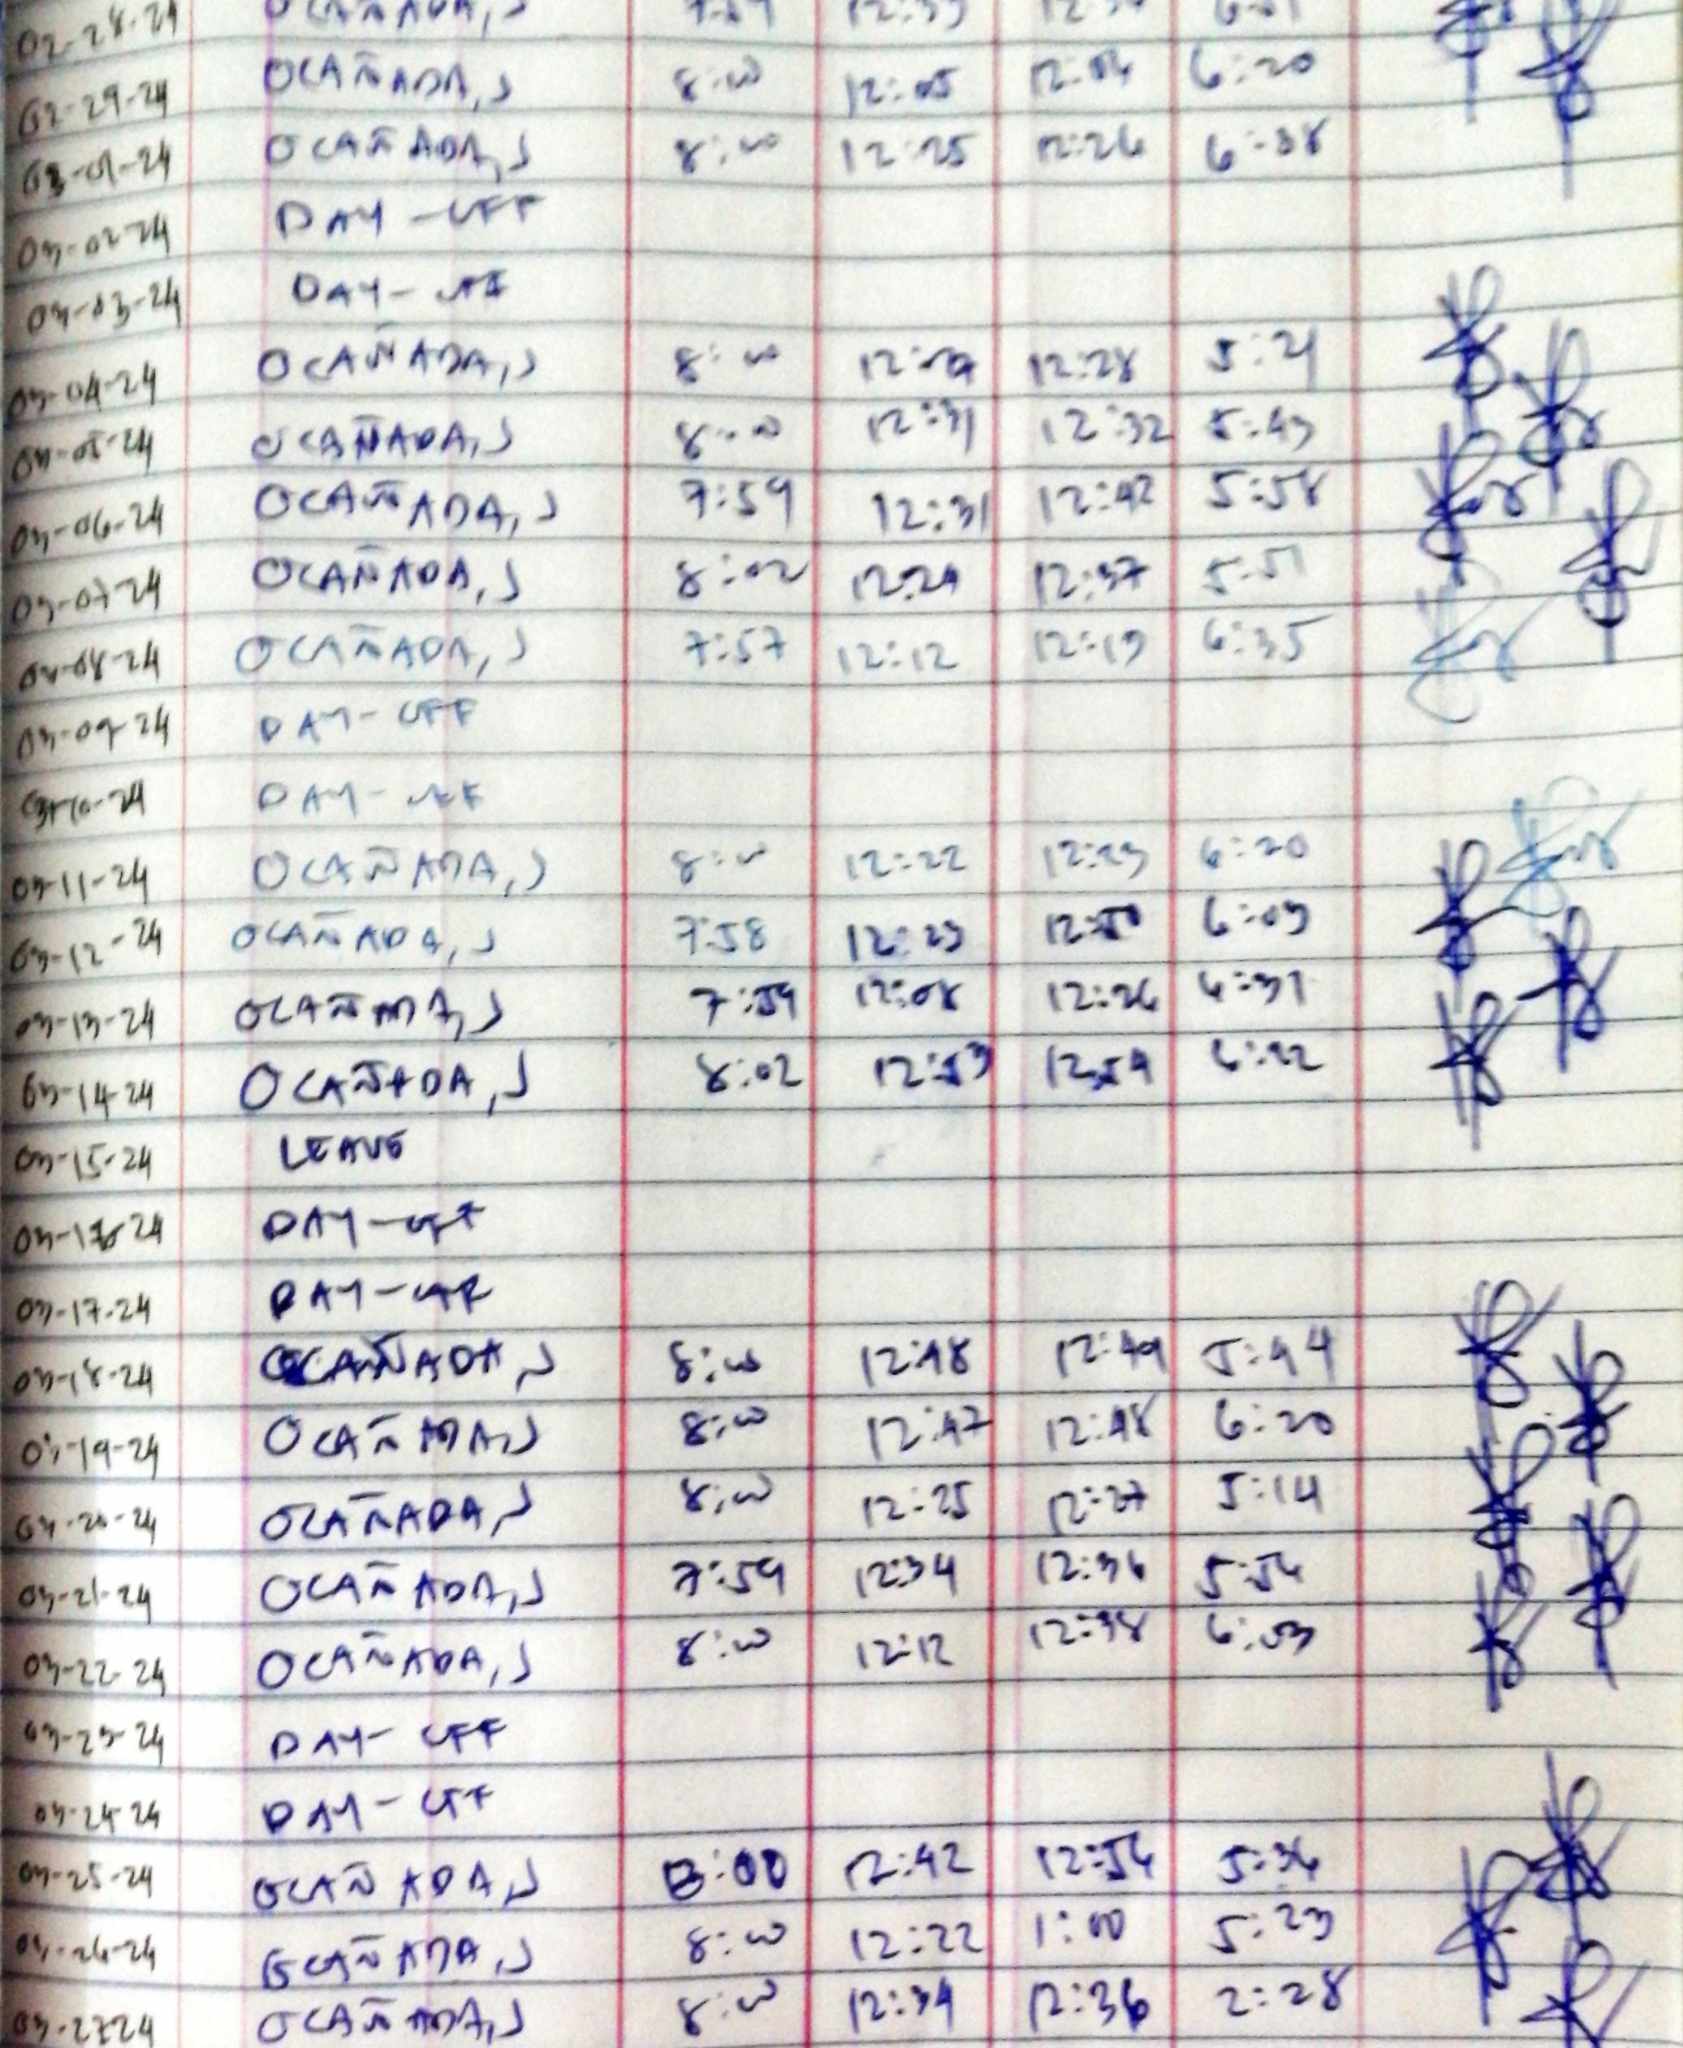 02-28-24 OCAÑADA, J 12:39
02-29-24 OCAÑADA, J 8:00 12:05 12:06 6:20
03-01-24 OCAÑADA, J 8:00 12:25 12:26 6:38
03-02-24 DAY-OFF
03-03-24 DAY-OFF
03-04-24 OCAÑADA, J 8:00 12:27 12:28 5:21
03-05-24 OCAÑADA, J 8:00 12:31 12:32 5:43
03-06-24 OCAÑADA, J 7:59 12:31 12:42 5:58
03-07-24 OCAÑADA, J 8:02 12:29 12:37 5:51
03-08-24 OCAÑADA, J 7:57 12:12 12:13 6:35
03-09-24 DAY-OFF
03-10-24 DAY-OFF
03-11-24 OCAÑADA, J 8:00 12:22 12:23 6:20
03-12-24 OCAÑADA, J 7:58 12:23 12:50 6:03
03-13-24 OCAÑADA, J 7:59 12:08 12:26 6:31
03-14-24 OCAÑADA, J 8:02 12:53 12:54 6:22
03-15-24 LEAVE
03-16-24 DAY-OFF
03-17-24 DAY-OFF
03-18-24 OCAÑADA, J 8:00 12:48 12:49 5:44
03-19-24 OCAÑADA, J 8:00 12:47 12:48 6:20
03-20-24 OCAÑADA, J 8:00 12:25 12:27 5:14
03-21-24 OCAÑADA, J 7:59 12:34 12:36 5:56
03-22-24 OCAÑADA, J 8:00 12:12 12:38 6:03
03-23-24 DAY-OFF
03-24-24 DAY-OFF
03-25-24 OCAÑADA, J 8:00 12:42 12:56 5:36
03-26-24 OCAÑADA, J 8:00 12:22 1:00 5:23
03-27-24 OCAÑADA, J 8:00 12:34 12:36 2:28